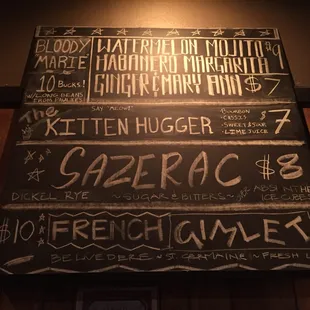 BLOODY
MARIE
10 BUCKS!
W/LONG BEANS
WATERMELON MOJITO $9
HABANERO MARGARITA
GINGER & MARY ANN $7
The SAY "MEOW"
KITTEN HUGGER
BOURBON
SWEET & SOUR
LIME JUICE
$7
SAZERAC $8
DICKEL RYE ~ SUGAR & BITTERS ~ ABSINTHE
$10 FRENCH GIMLET
BELVEDERE ST. GERMAINE ~ FRESH